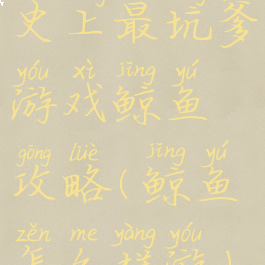 史上最坑爹
yóu xì jīng yú
游戏鲸鱼
gōng lüè jīng yú
攻略(鲸鱼
zěn me yàng yóu